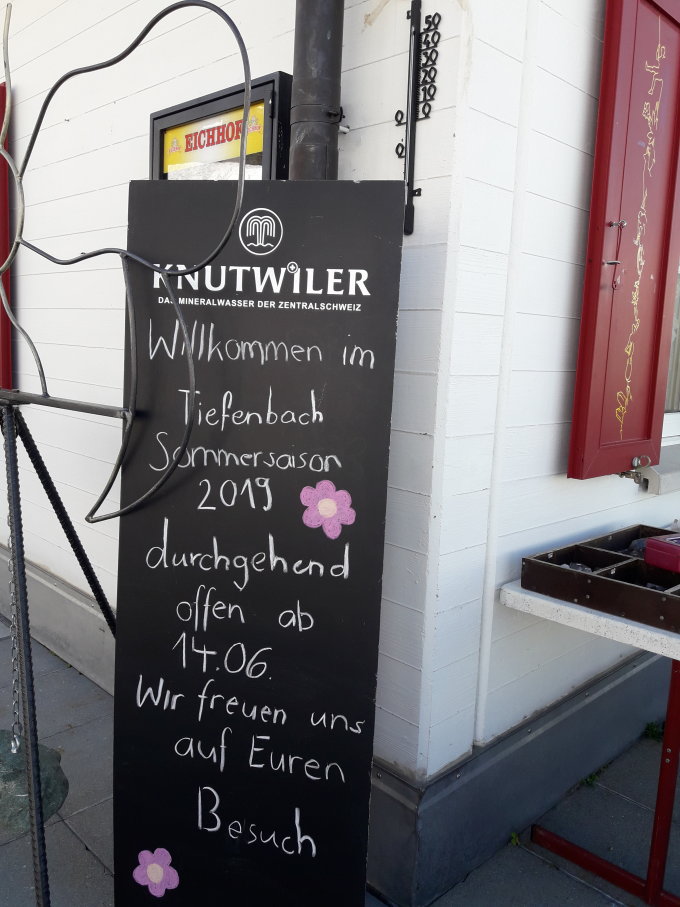 50
40
30
20
10
0
10
20
EICHHOF
KNUTWILER
DAS MINERALWASSER DER ZENTRALSCHWEIZ
Willkommen im
Tiefenbach
Sommersaison
2019
durchgehend
offen ab
14.06.
Wir freuen uns
auf Euren
Besuch